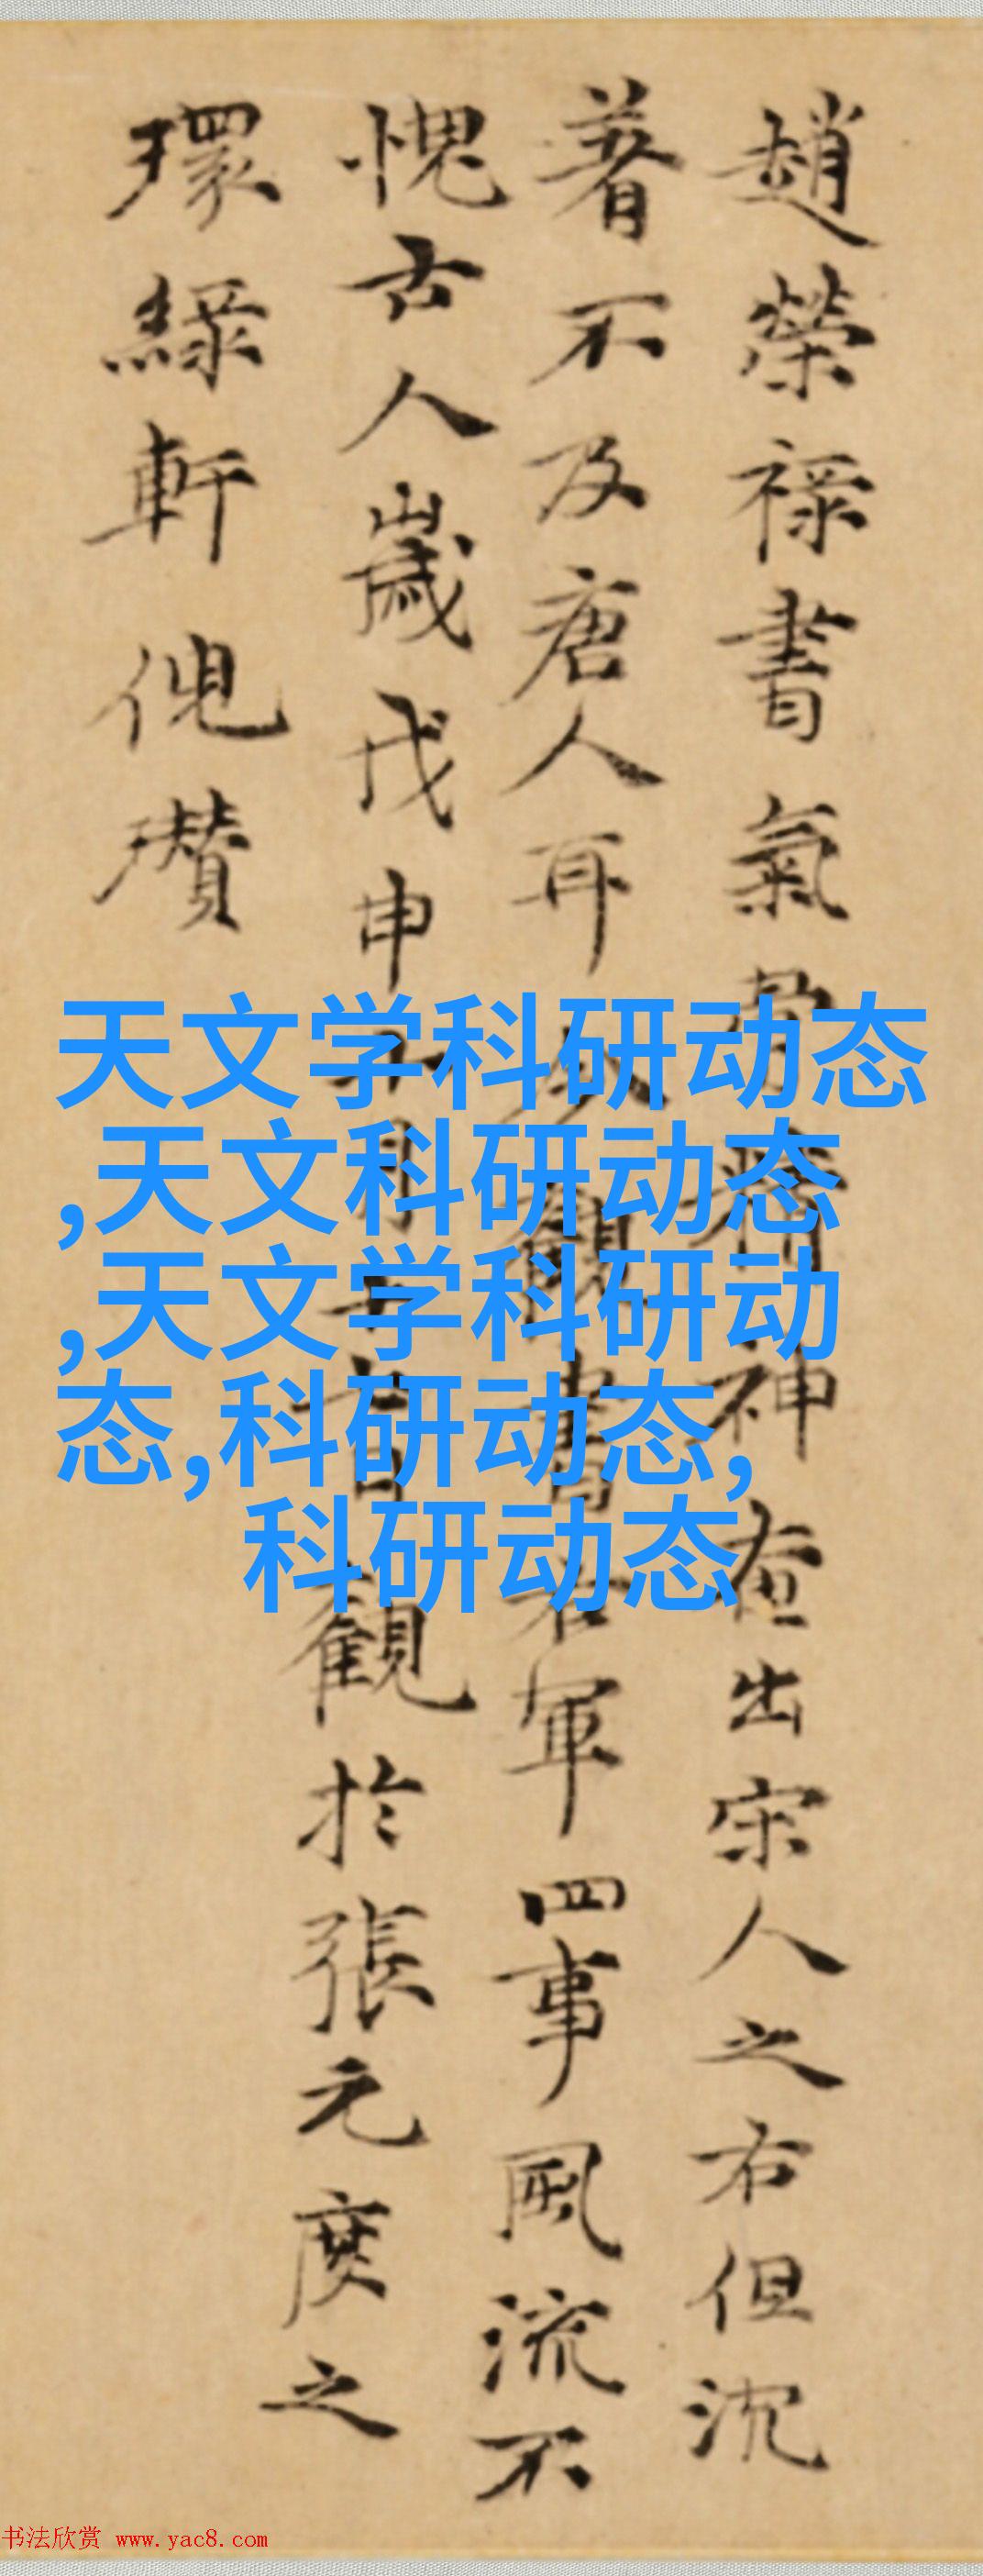 趙榮祿書氣骨神畫出宋人之右但沈
著不及唐人耳觀書右軍四事風流不
愧古人歲戊申十月觀於張元度之
環綠軒倪瓚
天文学科研动态
,天文科研动态
,天文学科研动
态,科研动态,
科研动态
书法欣赏 www.yac8.com